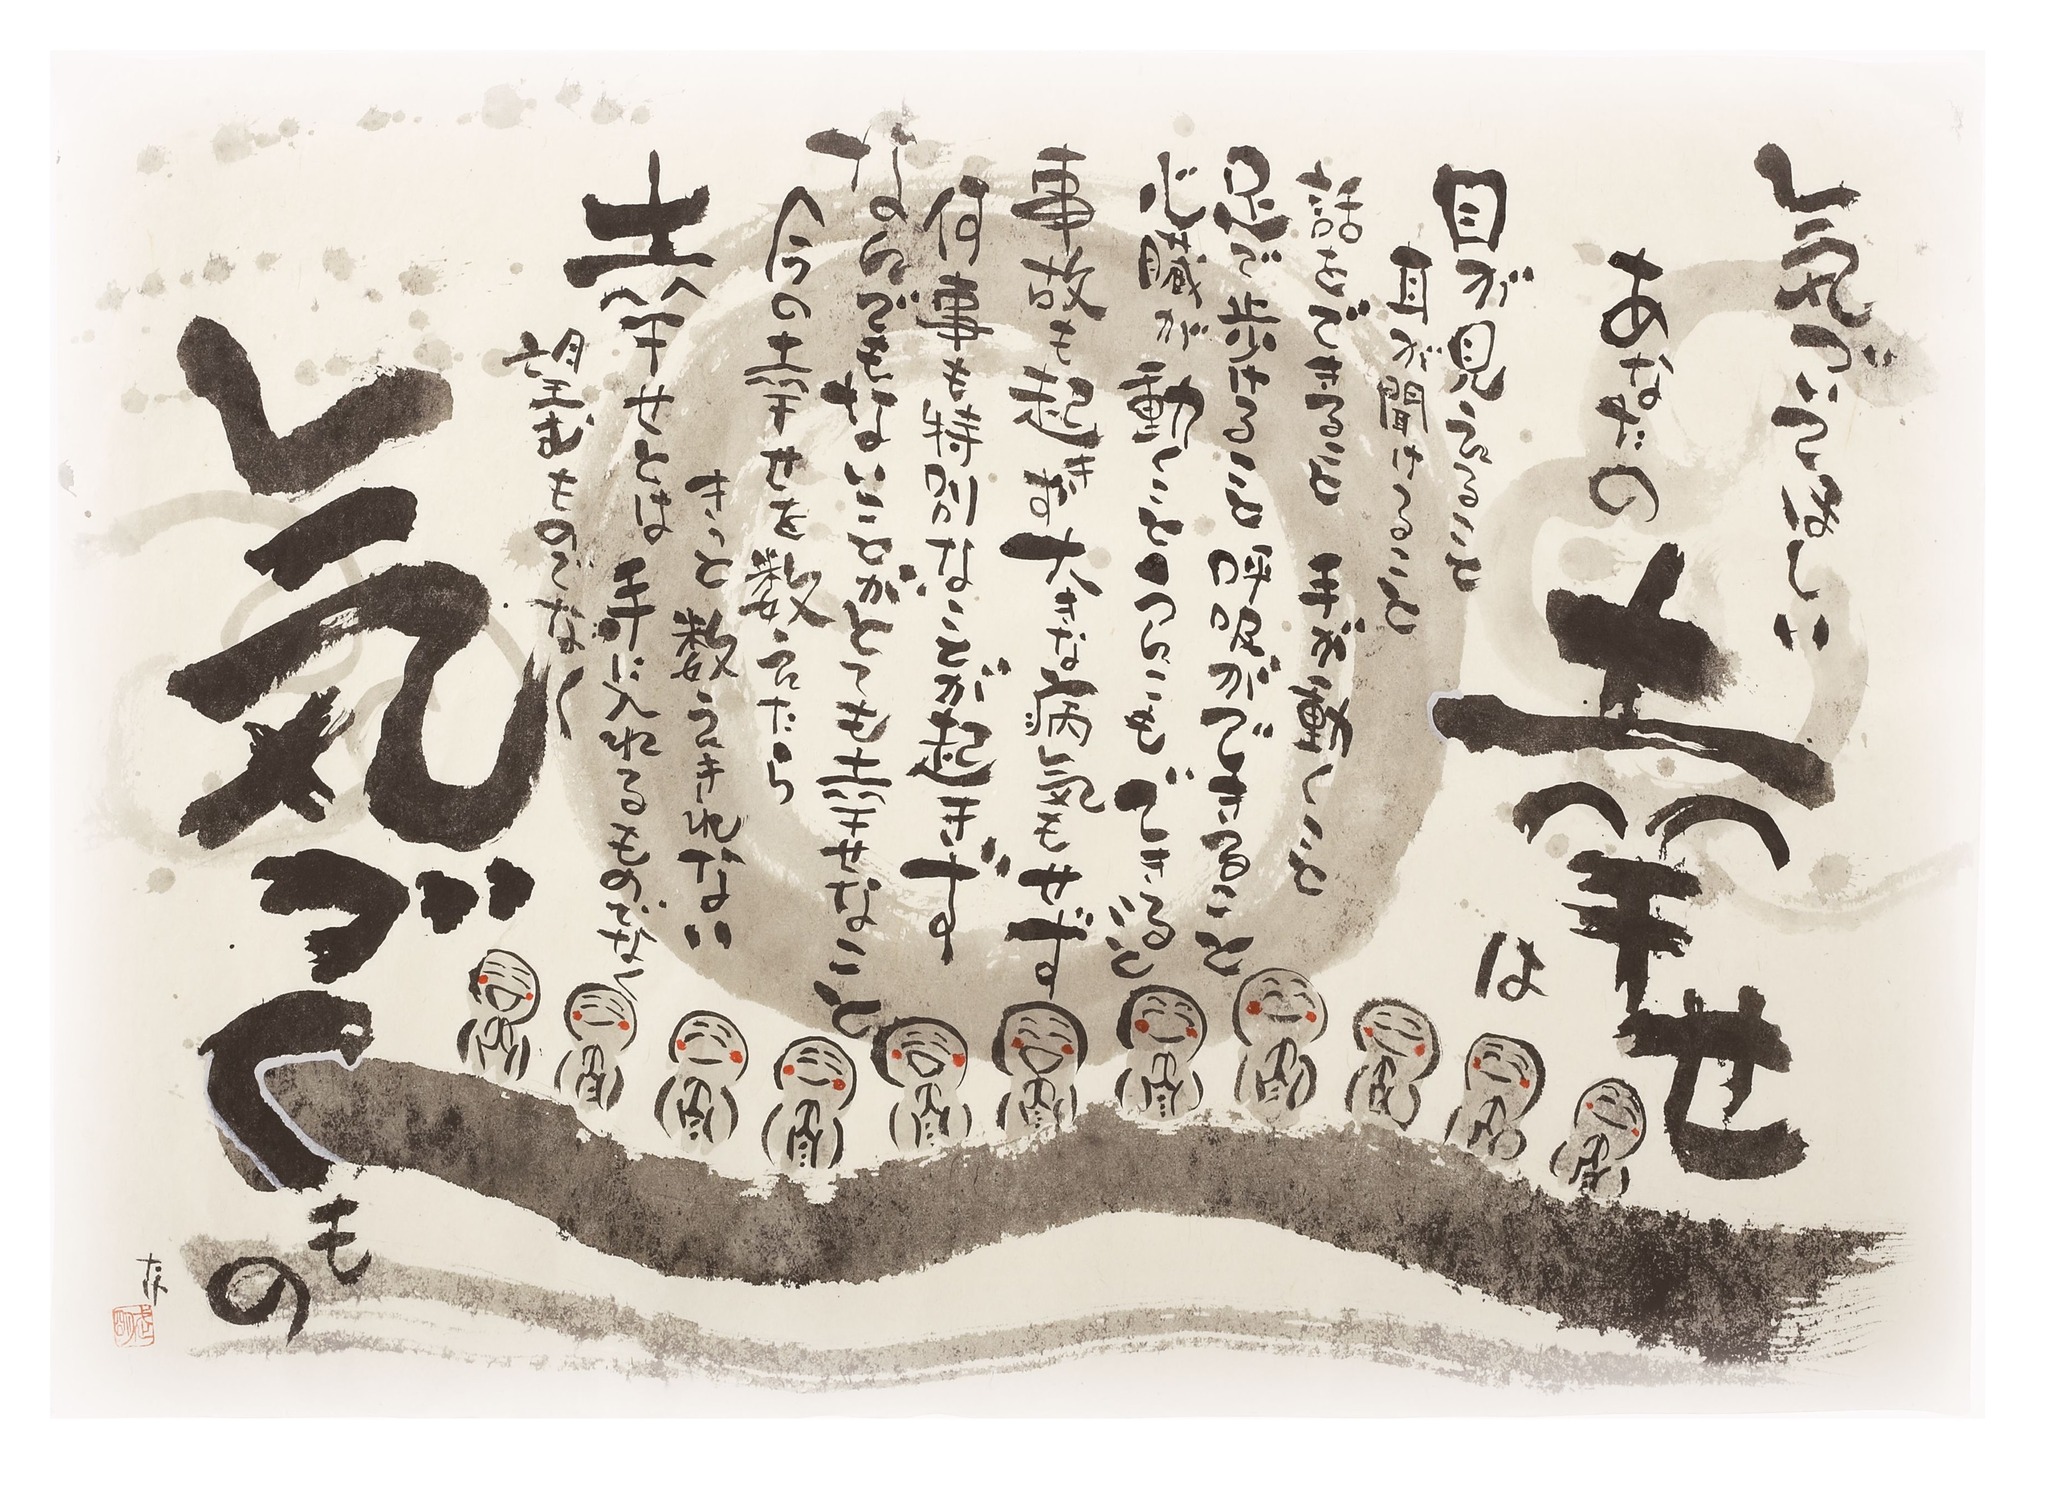 気づいてほしい
あなたの
幸せ
は
目が見えること
耳が聞けること
話をできること 手が動くこと
足で歩けること 呼吸ができること
心臓が動くこと うんこもできること
事故も起きず 大きな病気もせず
何事も特別なことが起きず
なんでもないことがとても幸せなこと
今の幸せを数えたら
きっと数うきれない
幸せとは手に入れるものでなく
望むものでなく
気づく
もの